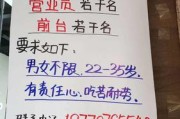 营业员 若干名
前台 若干名
要求如下:
男女不限, 22-35岁,
有责任心, 吃苦耐劳.